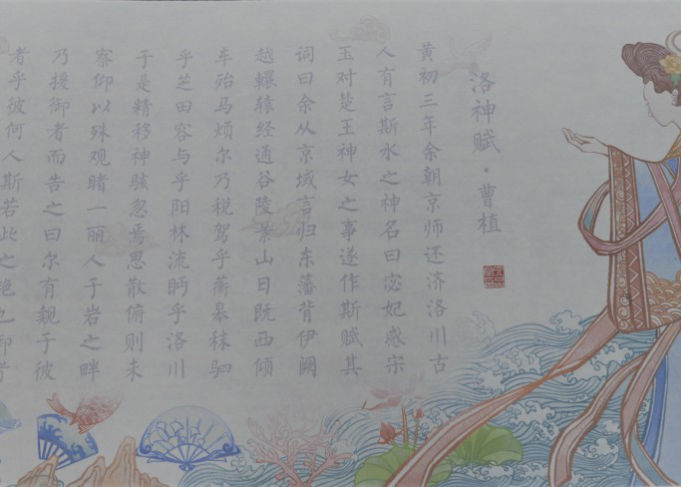 洛神赋·曹植
黄初三年余朝京师还济洛川古
人有言斯水之神名曰宓妃感宋
玉对楚王神女之事遂作斯赋其
词曰余从京域言归东藩背伊阙
越轘辕经通谷陵景山日既西倾
车殆马烦尔乃税驾乎蘅皋秣驷
乎芝田容与乎阳林流眄乎洛川
于是精移神骇忽焉思散俯则未
察仰以殊观睹一丽人于岩之畔
乃援御者而告之曰尔有觌于彼
者乎彼何人斯若此之艳也御者